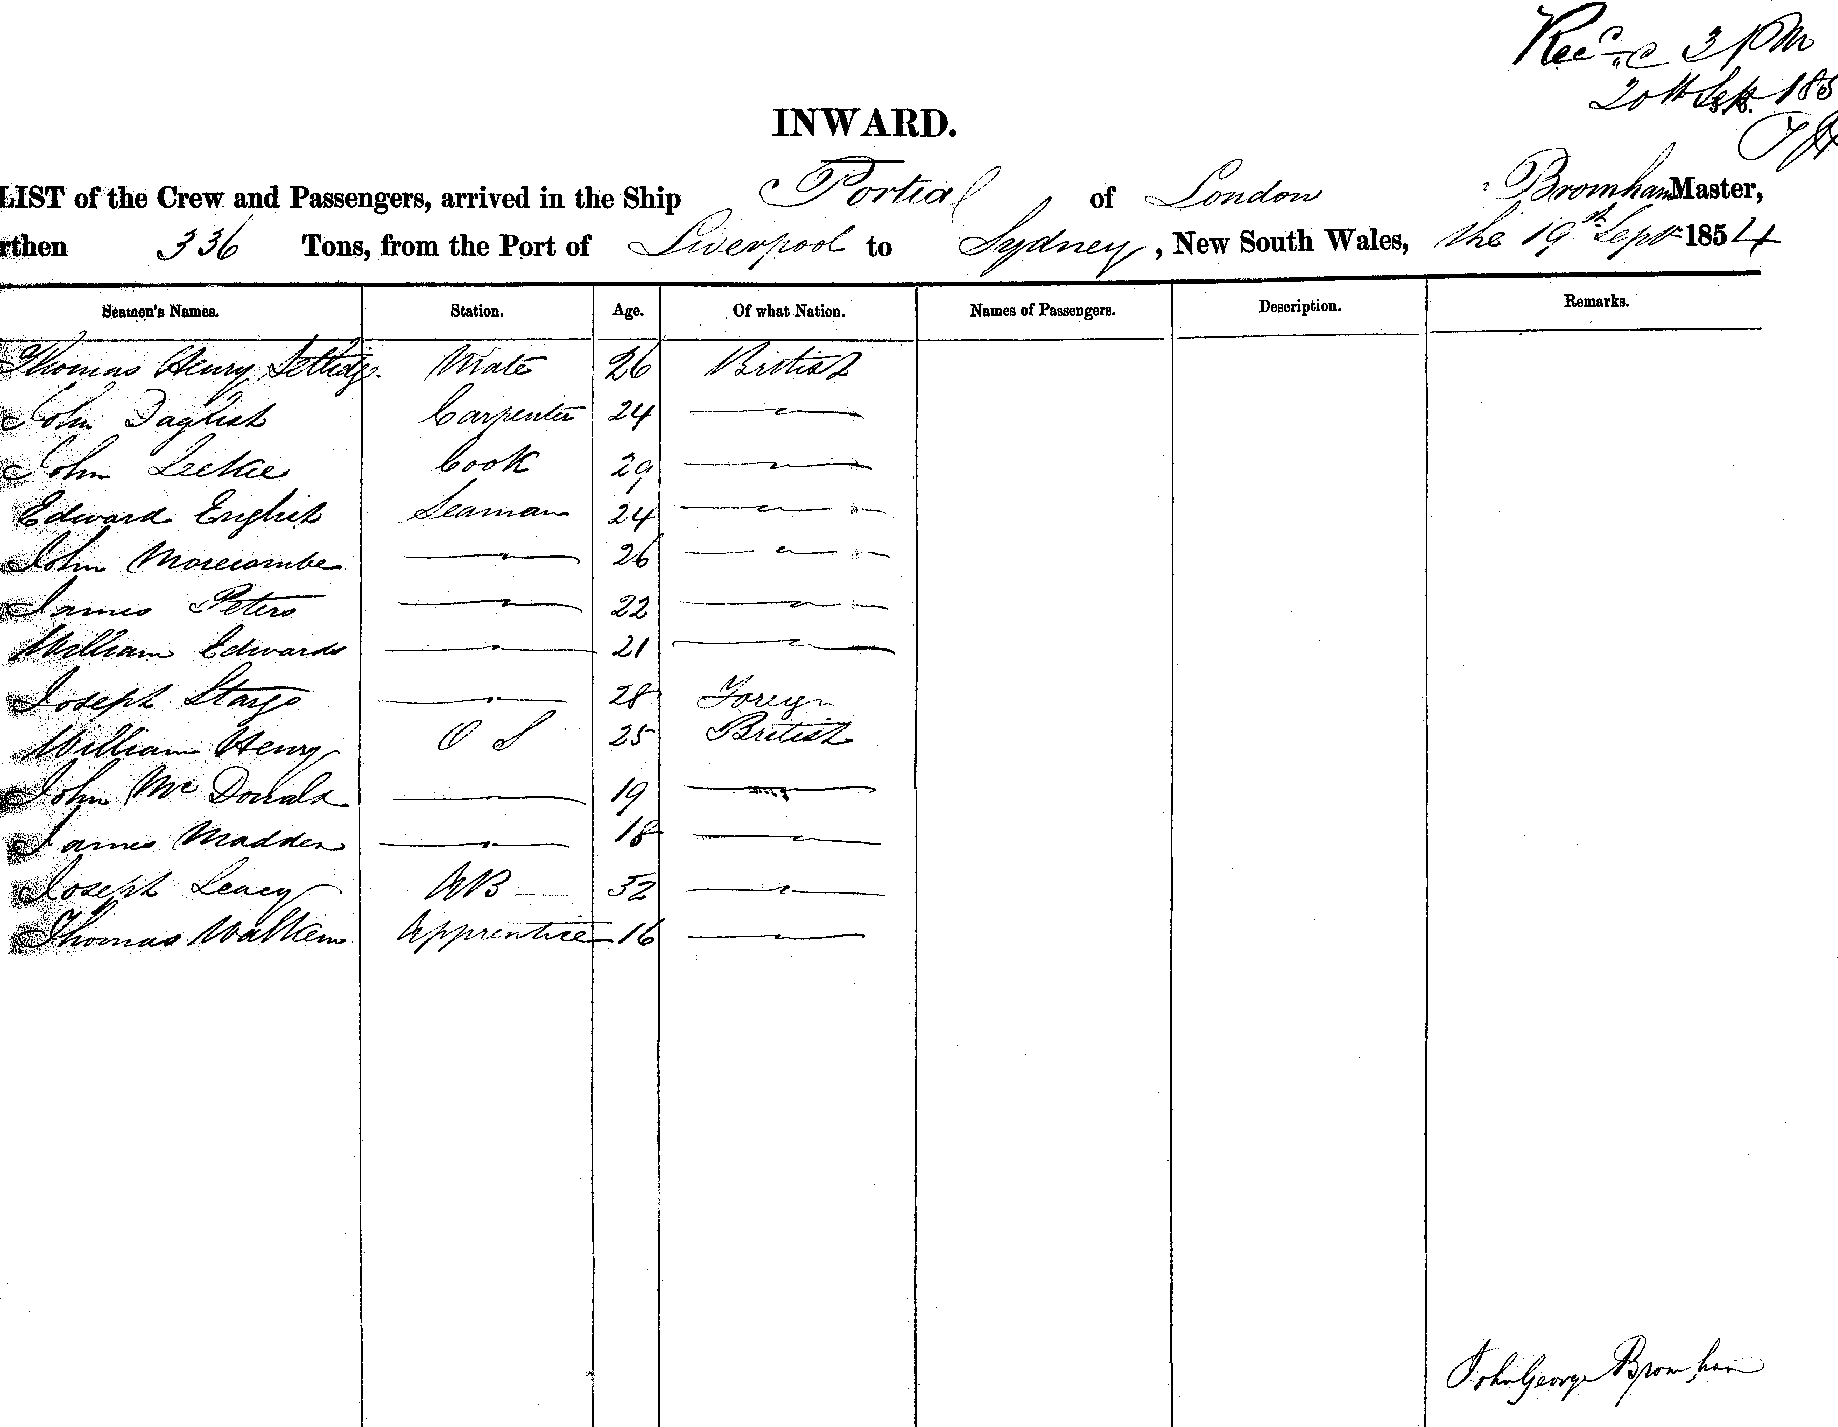 3 PM
20th Sept. 185
INWARD.
LIST of the Crew and Passengers, arrived in the Ship Portia of London Bromham Master,
rthen 336 Tons, from the Port of Liverpool to Sydney, New South Wales, the 19th Sept 1854
Seamen's Names. Station. Age. Of what Nation. Names of Passengers. Description. Remarks.
Thomas Henry Mate 26 British
John Daglish Carpenter 24 — " —
John Leckie Cook 29 — " —
Edward English Seaman 24 — " —
John Morecombe — " — 26 — " —
James Peters — " — 22 — " —
William Edwards — " — 21 — " —
Joseph — " — 28 Foreign
William Henry O S 25 British
John McDonald — " — 19 — " —
James Madden — " — 18 — " —
Joseph Leacy AB 32 — " —
Thomas Apprentice 16 — " —
John George Bromham